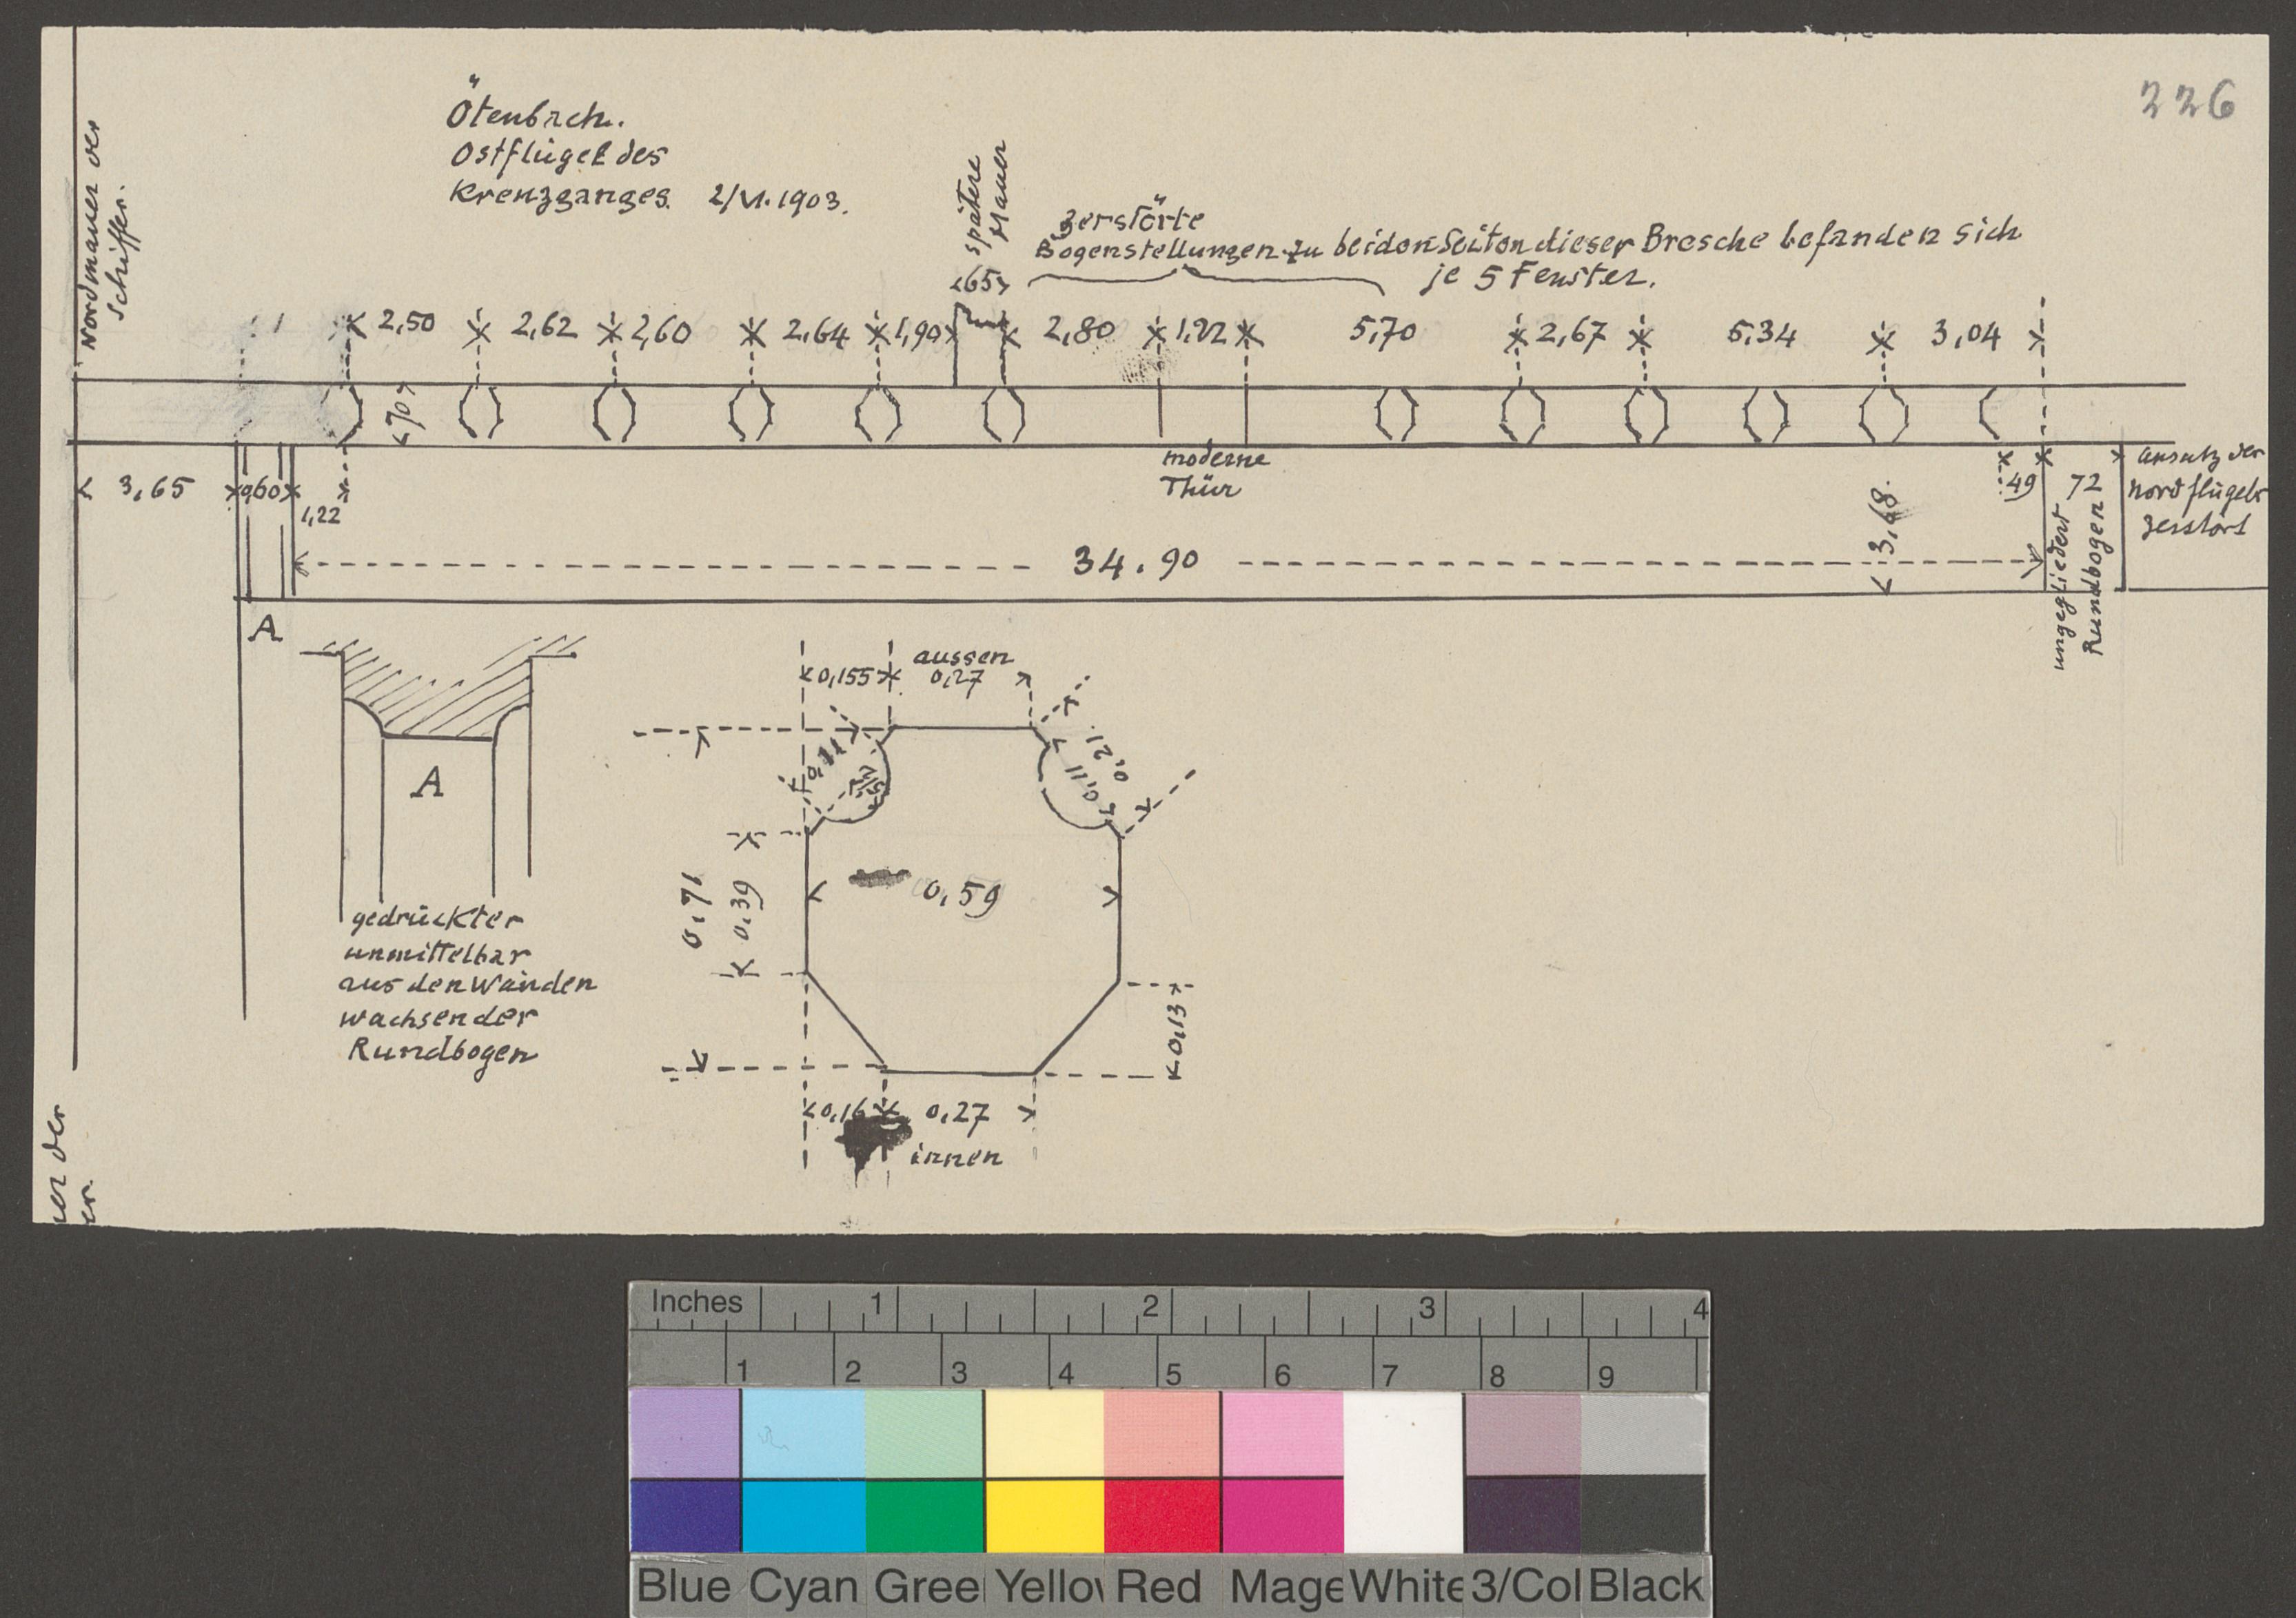 226
Ötenbach.
Ostflügel des
Kreuzganges. 2/VI. 1903.
Nordmauer der
Schiffer.
spätere
Mauer
zerstörte
Bogenstellungen. zu beiden Seiten dieser Bresche befanden sich
je 5 Fenster.
65
2,50 2,62 2,60 2,64 1,90 2,80 1,22 5,70 2,67 5,34 3,04
70
moderne
Thür
3,65 0,60 1,22
49 72
3,68.
Ansatz der
Nordflügels
zerstört
34.90
ungegliedert
Rundbogen
A
A
gedrückter
unmittelbar
aus den Wänden
wachsender
Rundbogen
aussen
0,155 0,27
0,21.
0,11
0,71
0,39
0,59
0,13
0,16 0,27
innen
er der
er.
Inches 1 2 3 4
1 2 3 4 5 6 7 8 9
Blue Cyan Gree Yello Red Mage White 3/Col Black